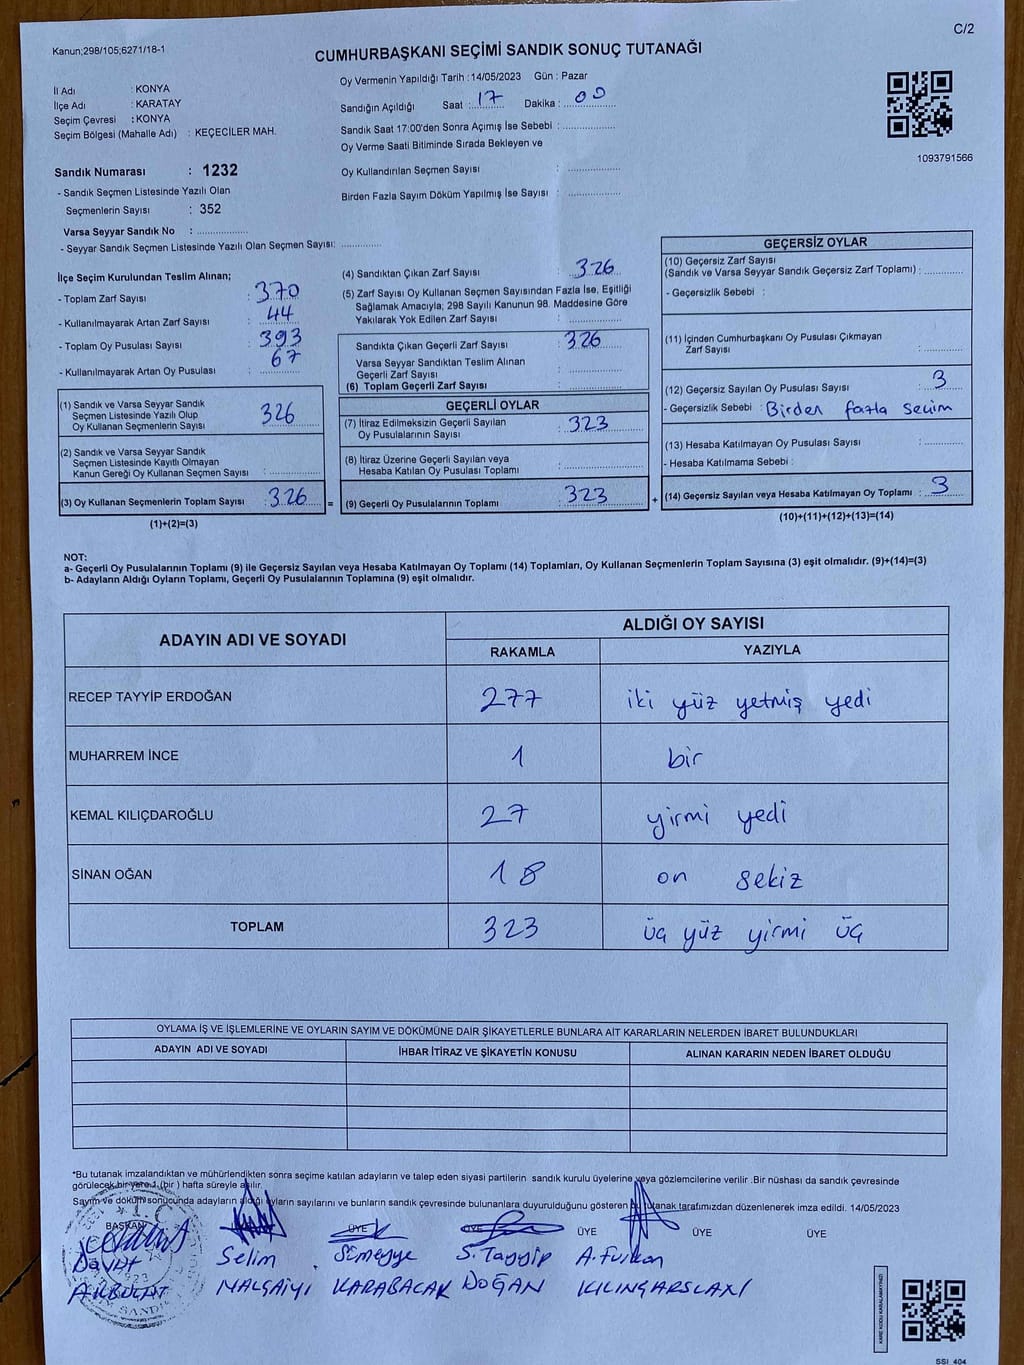 C/2
Kanun;298/105;6271/18-1
CUMHURBAŞKANI SEÇİMİ SANDIK SONUÇ TUTANAĞI
İl Adı : KONYA
İlçe Adı : KARATAY
Seçim Çevresi : KONYA
Seçim Bölgesi (Mahalle Adı) : KEÇECİLER MAH.
Oy Vermenin Yapıldığı Tarih : 14/05/2023 Gün : Pazar
Sandığın Açıldığı Saat : 17 Dakika : 00
Sandık Saat 17:00'den Sonra Açımış İse Sebebi :
Oy Verme Saati Bitiminde Sırada Bekleyen ve
Oy Kullandırılan Seçmen Sayısı :
Birden Fazla Sayım Döküm Yapılmış İse Sayısı :
1093791566
Sandık Numarası : 1232
- Sandık Seçmen Listesinde Yazılı Olan
Seçmenlerin Sayısı : 352
Varsa Seyyar Sandık No :
- Seyyar Sandık Seçmen Listesinde Yazılı Olan Seçmen Sayısı:
İlçe Seçim Kurulundan Teslim Alınan;
- Toplam Zarf Sayısı : 370
- Kullanılmayarak Artan Zarf Sayısı : 44
- Toplam Oy Pusulası Sayısı : 393
- Kullanılmayarak Artan Oy Pusulası : 67
(1) Sandık ve Varsa Seyyar Sandık
Seçmen Listesinde Yazılı Olup
Oy Kullanan Seçmenlerin Sayısı : 326
(2) Sandık ve Varsa Seyyar Sandık
Seçmen Listesinde Kayıtlı Olmayan
Kanun Gereği Oy Kullanan Seçmen Sayısı :
(3) Oy Kullanan Seçmenlerin Toplam Sayısı : 326 =
(1)+(2)=(3)
(4) Sandıktan Çıkan Zarf Sayısı : 326
(5) Zarf Sayısı Oy Kullanan Seçmen Sayısından Fazla İse, Eşitliği
Sağlamak Amacıyla; 298 Sayılı Kanunun 98. Maddesine Göre
Yakılarak Yok Edilen Zarf Sayısı :
Sandıkta Çıkan Geçerli Zarf Sayısı : 326
Varsa Seyyar Sandıktan Teslim Alınan
Geçerli Zarf Sayısı :
(6) Toplam Geçerli Zarf Sayısı :
GEÇERLİ OYLAR
(7) İtiraz Edilmeksizin Geçerli Sayılan
Oy Pusulalarının Sayısı : 323
(8) İtiraz Üzerine Geçerli Sayılan veya
Hesaba Katılan Oy Pusulası Toplamı :
(9) Geçerli Oy Pusulalarının Toplamı : 323 +
GEÇERSİZ OYLAR
(10) Geçersiz Zarf Sayısı
(Sandık ve Varsa Seyyar Sandık Geçersiz Zarf Toplamı) :
- Geçersizlik Sebebi :
(11) İçinden Cumhurbaşkanı Oy Pusulası Çıkmayan
Zarf Sayısı :
(12) Geçersiz Sayılan Oy Pusulası Sayısı : 3
- Geçersizlik Sebebi : Birden fazla seçim
(13) Hesaba Katılmayan Oy Pusulası Sayısı :
- Hesaba Katılmama Sebebi :
(14) Geçersiz Sayılan veya Hesaba Katılmayan Oy Toplamı : 3
(10)+(11)+(12)+(13)=(14)
NOT:
a- Geçerli Oy Pusulalarının Toplamı (9) ile Geçersiz Sayılan veya Hesaba Katılmayan Oy Toplamı (14) Toplamları, Oy Kullanan Seçmenlerin Toplam Sayısına (3) eşit olmalıdır. (9)+(14)=(3)
b- Adayların Aldığı Oyların Toplamı, Geçerli Oy Pusulalarının Toplamına (9) eşit olmalıdır.
ADAYIN ADI VE SOYADI ALDIĞI OY SAYISI
RAKAMLA YAZIYLA
RECEP TAYYİP ERDOĞAN 277 iki yüz yetmiş yedi
MUHARREM İNCE 1 bir
KEMAL KILIÇDAROĞLU 27 yirmi yedi
SİNAN OĞAN 18 on sekiz
TOPLAM 323 üç yüz yirmi üç
OYLAMA İŞ VE İŞLEMLERİNE VE OYLARIN SAYIM VE DÖKÜMÜNE DAİR ŞİKAYETLERLE BUNLARA AİT KARARLARIN NELERDEN İBARET BULUNDUKLARI
ADAYIN ADI VE SOYADI İHBAR İTİRAZ VE ŞİKAYETİN KONUSU ALINAN KARARIN NEDEN İBARET OLDUĞU
*Bu tutanak imzalandıktan ve mühürlendikten sonra seçime katılan adayların ve talep eden siyasi partilerin sandık kurulu üyelerine veya gözlemcilerine verilir .Bir nüshası da sandık çevresinde
görülecek bir yere 1 (bir ) hafta süreyle asılır.
Sayım ve döküm sonucunda adayların aldığı oyların sayılarını ve bunların sandık çevresinde bulunanlara duyurulduğunu gösteren bu tutanak tarafımızdan düzenlenerek imza edildi. 14/05/2023
BAŞKAN ÜYE ÜYE ÜYE ÜYE ÜYE
Davut Selim Sümeyye S. Tayyip A. Furkan
AKBULAT MALÇAİYİ KARABACAK DOĞAN KILINÇARSLAN
T.C.
KARE KODU KARALAMAYINIZ!
SSI_404